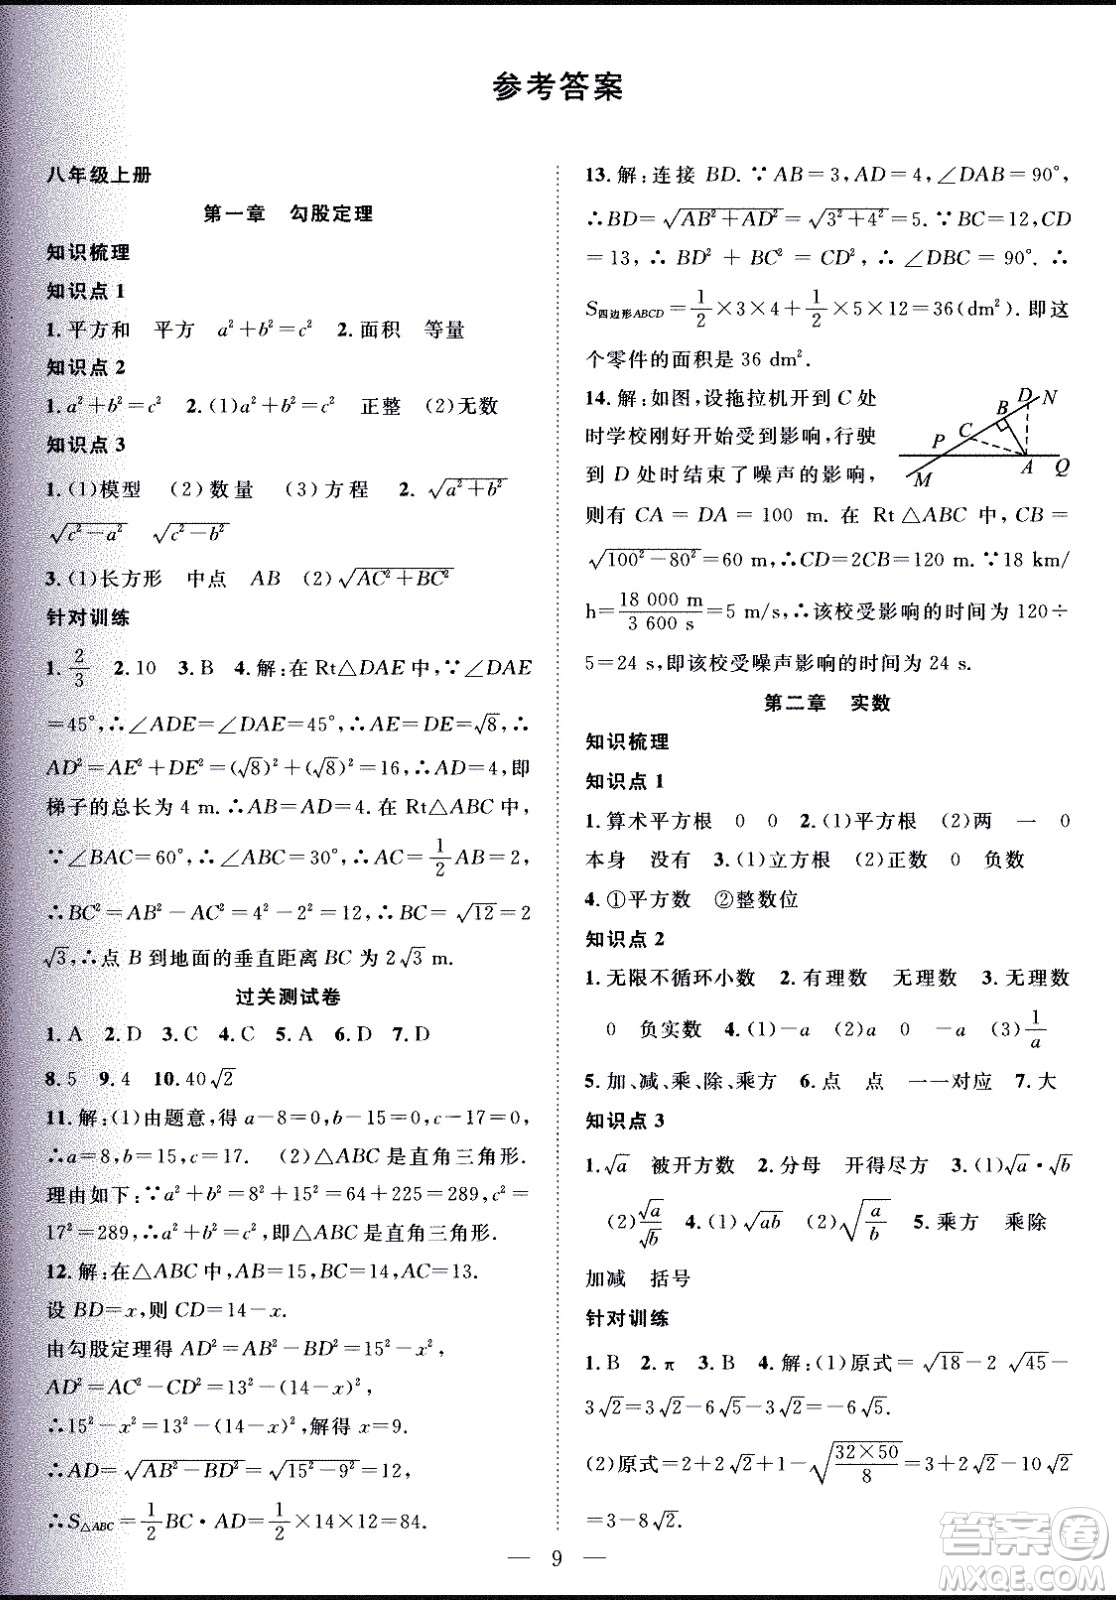 参考答案
八年级上册
第一章　勾股定理
知识梳理
知识点 1
1.平方和　平方　a²+b²=c²　2.面积　等量
知识点 2
1.a²+b²=c²　2.(1)a²+b²=c²　正整　(2)无数
知识点 3
1.(1)模型　(2)数量　(3)方程　2.√(a²+b²)
√(c²-a²)　√(c²-b²)
3.(1)长方形　中点　AB　(2)√(AC²+BC²)
针对训练
1. 2/3　2.10　3.B　4.解:在 Rt△DAE 中,∵∠DAE
=45°,∴∠ADE=∠DAE=45°,AE=DE=√8,∴
AD²=AE²+DE²=(√8)²+(√8)²=16,∴AD=4,即
梯子的总长为 4 m.∴AB=AD=4.在 Rt△ABC 中,
∵∠BAC=60°,∴∠ABC=30°,∴AC=1/2AB=2,
∴BC²=AB²-AC²=4²-2²=12,∴BC=√12=2
√3,∴点 B 到地面的垂直距离 BC 为 2√3 m.
过关测试卷
1.A　2.D　3.C　4.C　5.A　6.D　7.D
8.5　9.4　10.40√2
11.解:(1)由题意,得 a-8=0,b-15=0,c-17=0,
∴a=8,b=15,c=17.　(2)△ABC 是直角三角形.
理由如下:∵a²+b²=8²+15²=64+225=289,c²=
17²=289,∴a²+b²=c²,即△ABC 是直角三角形.
12.解:在△ABC 中,AB=15,BC=14,AC=13.
设 BD=x,则 CD=14-x.
由勾股定理得 AD²=AB²-BD²=15²-x²,
AD²=AC²-CD²=13²-(14-x)²,
∴15²-x²=13²-(14-x)²,解得 x=9.
∴AD=√(AB²-BD²)=√(15²-9²)=12,
∴S△ABC=1/2BC·AD=1/2×14×12=84.
13.解:连接 BD.∵AB=3,AD=4,∠DAB=90°,
∴BD=√(AB²+AD²)=√(3²+4²)=5.∵BC=12,CD
=13,∴BD²+BC²=CD²,∴∠DBC=90°.∴
S四边形ABCD=1/2×3×4+1/2×5×12=36(dm²).即这
个零件的面积是 36 dm².
14.解:如图,设拖拉机开到 C 处
时学校刚好开始受到影响,行驶
到 D 处时结束了噪声的影响,
则有 CA=DA=100 m.在 Rt△ABC 中,CB=
√(100²-80²)=60 m,∴CD=2CB=120 m.∵18 km/
h=18 000 m/3 600 s=5 m/s,∴该校受影响的时间为 120÷
5=24 s,即该校受噪声影响的时间为 24 s.
D N
B
P C
M A Q
第二章　实数
知识梳理
知识点 1
1.算术平方根　0　0　2.(1)平方根　(2)两　一　0
本身　没有　3.(1)立方根　(2)正数　0　负数
4.①平方数　②整数位
知识点 2
1.无限不循环小数　2.有理数　无理数　3.无理数
0　负实数　4.(1)-a　(2)a　0　-a　(3)1/a
5.加、减、乘、除、乘方　6.点　点　一一对应　7.大
知识点 3
1.√a　被开方数　2.分母　开得尽方　3.(1)√a·√b
(2)√a/√b　4.(1)√(ab)　(2)√(a/b)　5.乘方　乘除
加减　括号
针对训练
1.B　2.π　3.B　4.解:(1)原式=√18-2 √45-
3√2=3√2-6√5-3√2=-6√5.
(2)原式=2+2√2+1-√(32×50/8)=3+2√2-10√2
=3-8√2.
— 9 —
答案圈
MXQE.COM